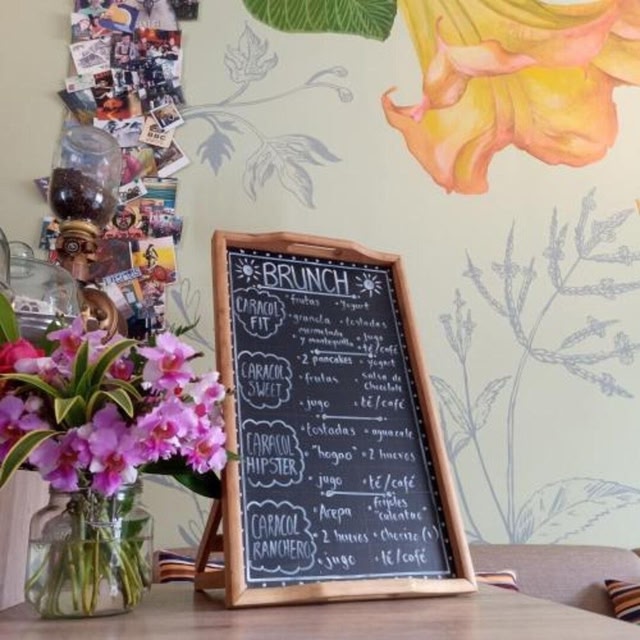 BRUNCH
CARACOL FIT
• frutas • yogurt
• granola • tostadas
mermelada y mantequilla • jugo
• té/café
CARACOL SWEET
• 2 pancakes • yogurt
• frutas • salsa de chocolate
• jugo • té/café
CARACOL HIPSTER
• tostadas • aguacate
• "hogao" • 2 huevos
• jugo • té/café
CARACOL RANCHERO
• Arepa • frijoles "calentao"
• 2 huevos • Chorizo (1)
• jugo • té/café
BBC